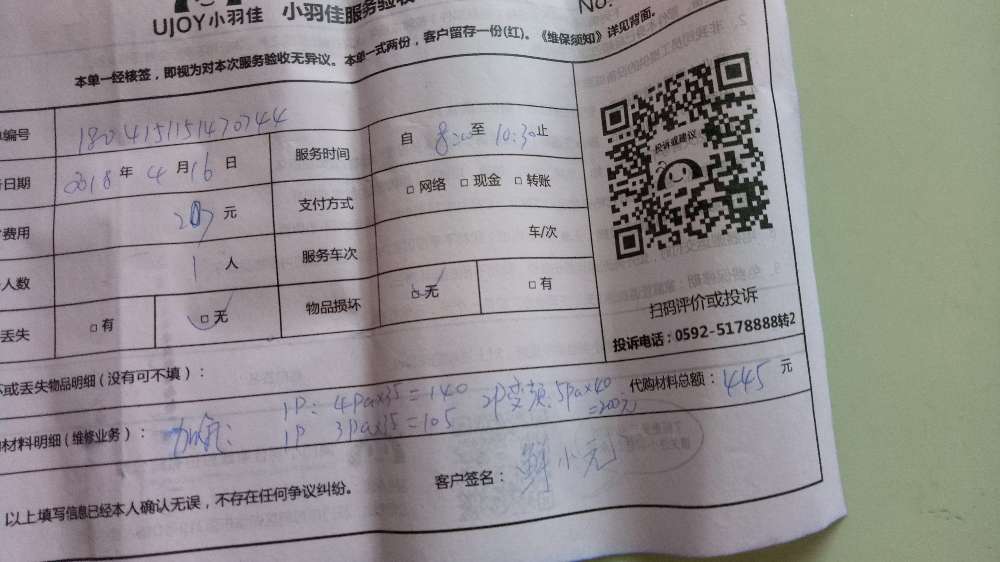 UJOY小羽佳 小羽佳服务验收
No.
本单一经核签，即视为对本次服务验收无异议。本单一式两份，客户留存一份(红)。《维保须知》详见背面。
编号 18041515147
日期 2018 年 4 月 16 日 服务时间 自 8:00 至 10:30 止
费用 元 支付方式 □ 网络 □ 现金 □ 转账
人数 1 人 服务车次 车/次
丢失 □ 有 □ 无 物品损坏 □ 无 □ 有
投诉或建议
扫码评价或投诉
投诉电话：0592-5178888转2
或丢失物品明细（没有可不填）：
材料明细（维修业务）： 加氟： 1P: 4Pax35=140 2P变频: 5Pax40=200元
1P 3Pax35=105
代购材料总额： 445 元
以上填写信息已经本人确认无误，不存在任何争议纠纷。
客户签名：